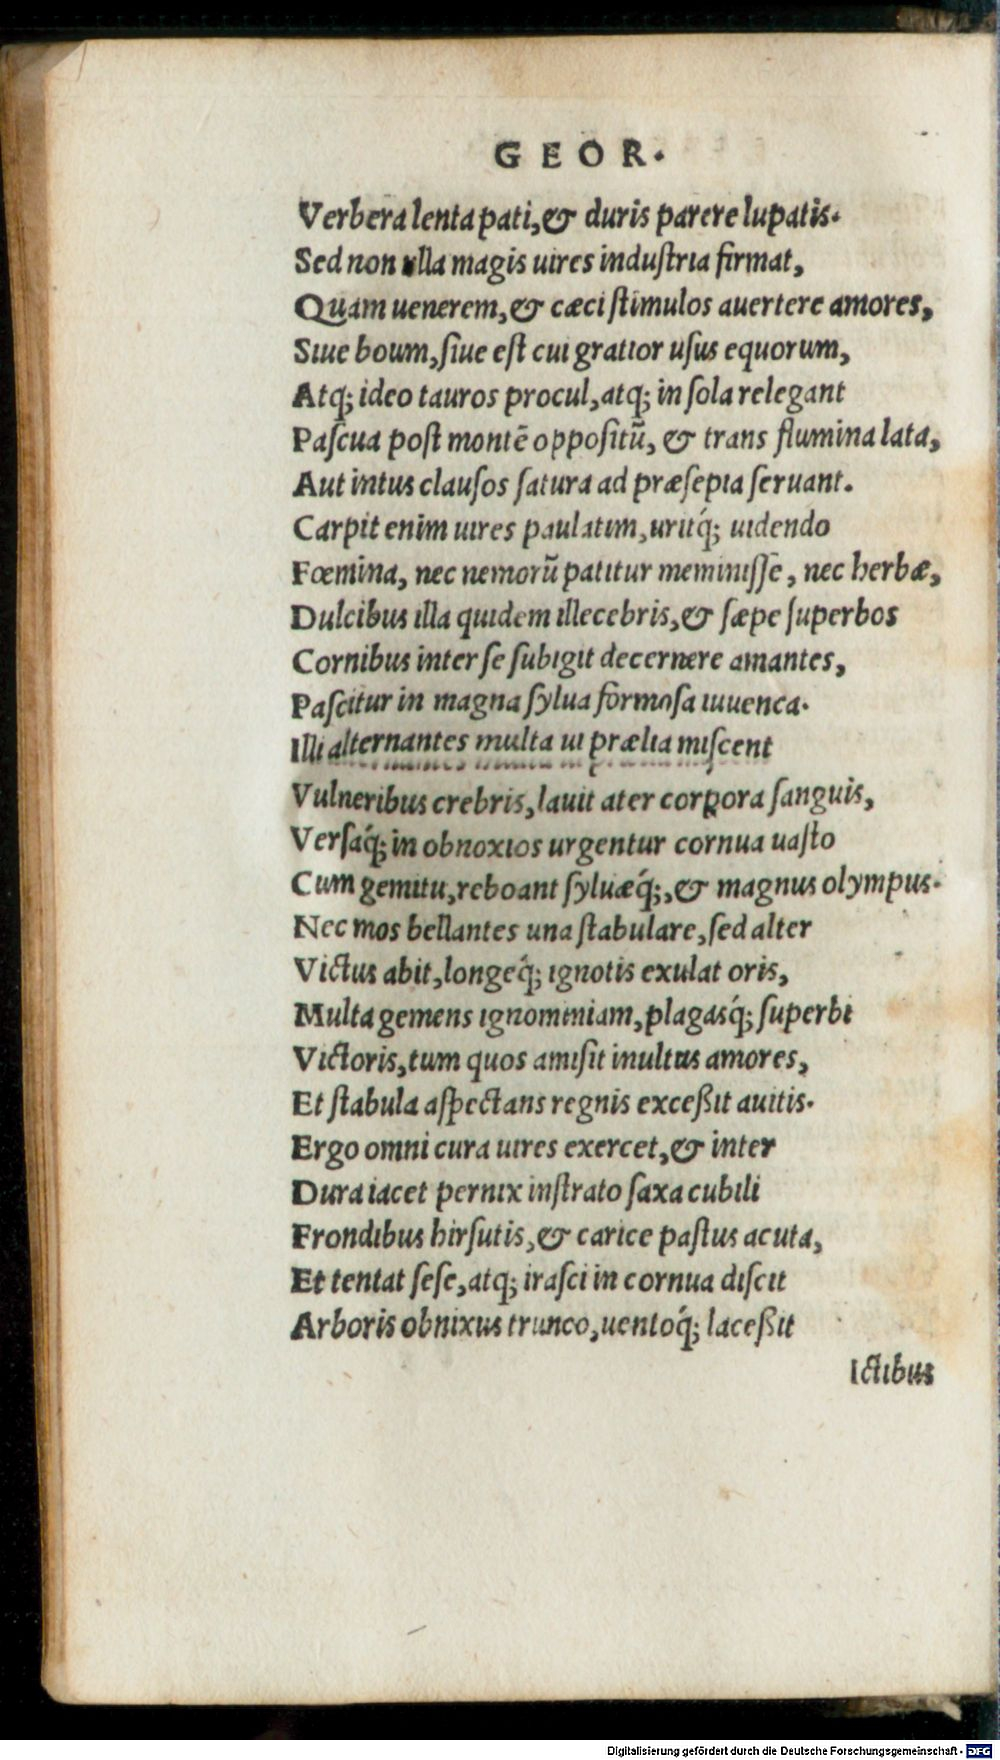 GEOR.
Verbera lenta pati,& duris parere lupatis.
Sed non ulla magis uires induſtria firmat,
Quam uenerem,& cæci ſtimulos auertere amores,
Siue boum,ſiue eſt cui gratior uſus equorum,
Atq; ideo tauros procul,atq; in ſola relegant
Paſcua poſt montē oppoſitū, & trans flumina lata,
Aut intus clauſos ſatura ad præſepia ſeruant.
Carpit enim uires paulatim,uritq́; uidendo
Fœmina, nec nemorū patitur meminiſſe, nec herbæ,
Dulcibus illa quidem illecebris,& ſæpe ſuperbos
Cornibus inter ſe ſubigit decernere amantes,
Paſcitur in magna ſylua formoſa iuuenca.
Illi alternantes multa ui prælia miſcent
Vulneribus crebris,lauit ater corpora ſanguis,
Verſaq́; in obnoxios urgentur cornua uaſto
Cum gemitu,reboant ſyluæq́;,& magnus olympus.
Nec mos bellantes una ſtabulare,ſed alter
Victus abit,longeq́; ignotis exulat oris,
Multa gemens ignominiam,plagasq́; ſuperbi
Victoris,tum quos amiſit inultus amores,
Et ſtabula aſpectans regnis exceßit auitis.
Ergo omni cura uires exercet,& inter
Dura iacet pernix inſtrato ſaxa cubili
Frondibus hirſutis,& carice paſtus acuta,
Et tentat ſeſe,atq; iraſci in cornua diſcit
Arboris obnixus trunco,uentoq́; laceßit
Ictibus
Digitalisierung gefördert durch die Deutsche Forschungsgemeinschaft - DFG